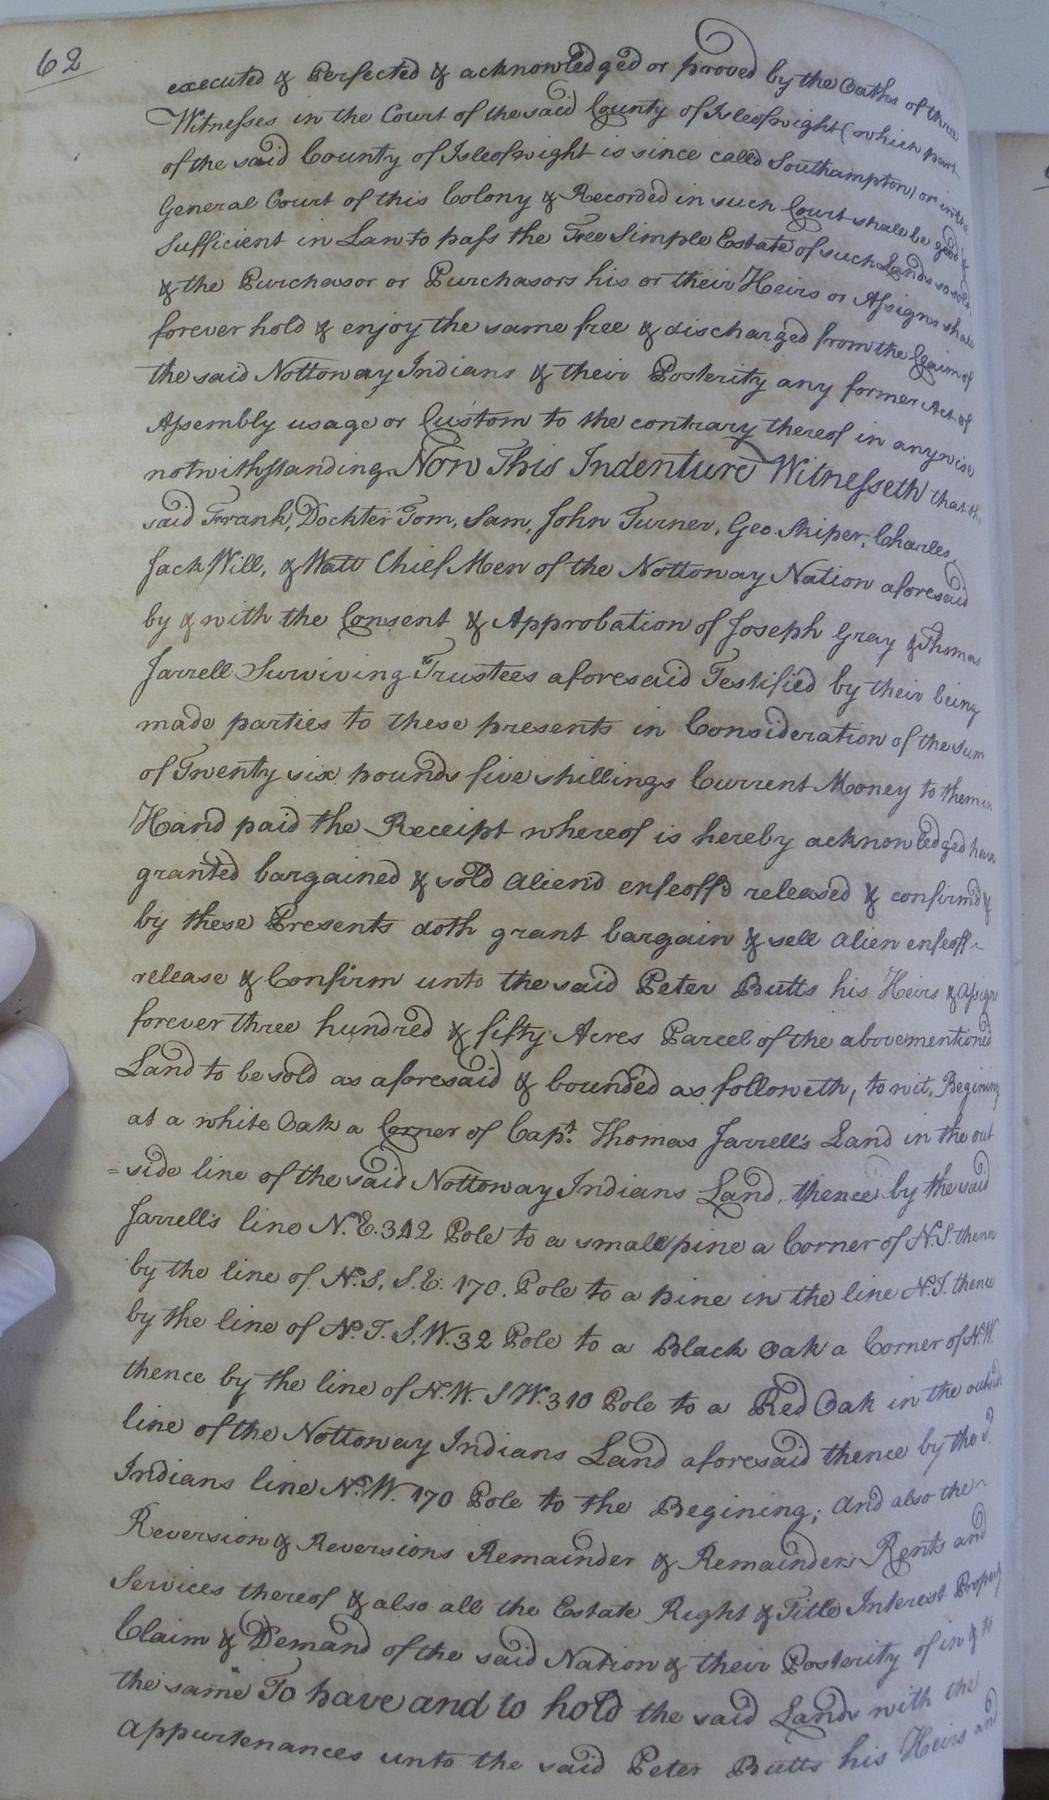 62
executed & Perfected & acknowledged or proved by the Oaths of three
Witnesses in the Court of the said County of Isleofwight (which part
of the said County of Isleofwight is since called Southampton) or in the
General Court of this Colony & Recorded in such Court shall be good &
Sufficient in Law to pass the Fee Simple Estate of such Lands so sold
& the Purchasor or Purchasors his or their Heirs or Assigns shall
forever hold & enjoy the same free & discharged from the Claim of
the said Nottoway Indians & their Posterity any former Act of
Assembly usage or Custom to the contrary thereof in anywise
notwithstanding Now This Indenture Witnesseth that the
said Frank, Dockter Tom, Sam, John Turner, Geo. Skiper, Charles,
Jack Will, & Watt Chief Men of the Nottoway Nation aforesaid
by & with the Consent & Approbation of Joseph Gray & Thomas
Jarrell Surviving Trustees aforesaid Testified by their being
made parties to these presents in Consideration of the Sum
of Twenty six pounds five shillings Current Mooney to them in
Hand paid the Receipt whereof is hereby acknowledged have
granted bargained & sold aliend enfeoff'd released & confirmd &
by these Presents doth grant bargain & sell alien enfeoff
release & Confirm unto the said Peter Butts his Heirs & Assigns
forever three hundred & fifty Acres Parcel of the abovementioned
Land to be sold as aforesaid & bounded as followeth, to wit, Begining
at a white Oak a Corner of Capt. Thomas Jarrell's Land in the out
=side line of the said Nottoway Indians Land, thence by the said
Jarrell's line N.E. 312 Pole to a small pine a Corner of N.S. thence
by the line of N.S, S.E. 170, Pole to a pine in the line N.T. thence
by the line of N.T. S.W. 32 Pole to a Black Oak a Corner of N.W.
thence by the line of N.W. S W. 310 Pole to a Red Oak in the outside
line of the Nottoway Indians Land aforesaid thence by the sd.
Indians line N.W. 170 Pole to the Begining; and also the
Reversion & Reversions Remainder & Remainders Rents and
Services thereof & also all the Estate Right & Title Interest Property
Claim & Demand of the said Nation & their Posterity of in & to
the same To have and to hold the said Lands with the
appurtenances unto the said Peter Butts his Heirs and